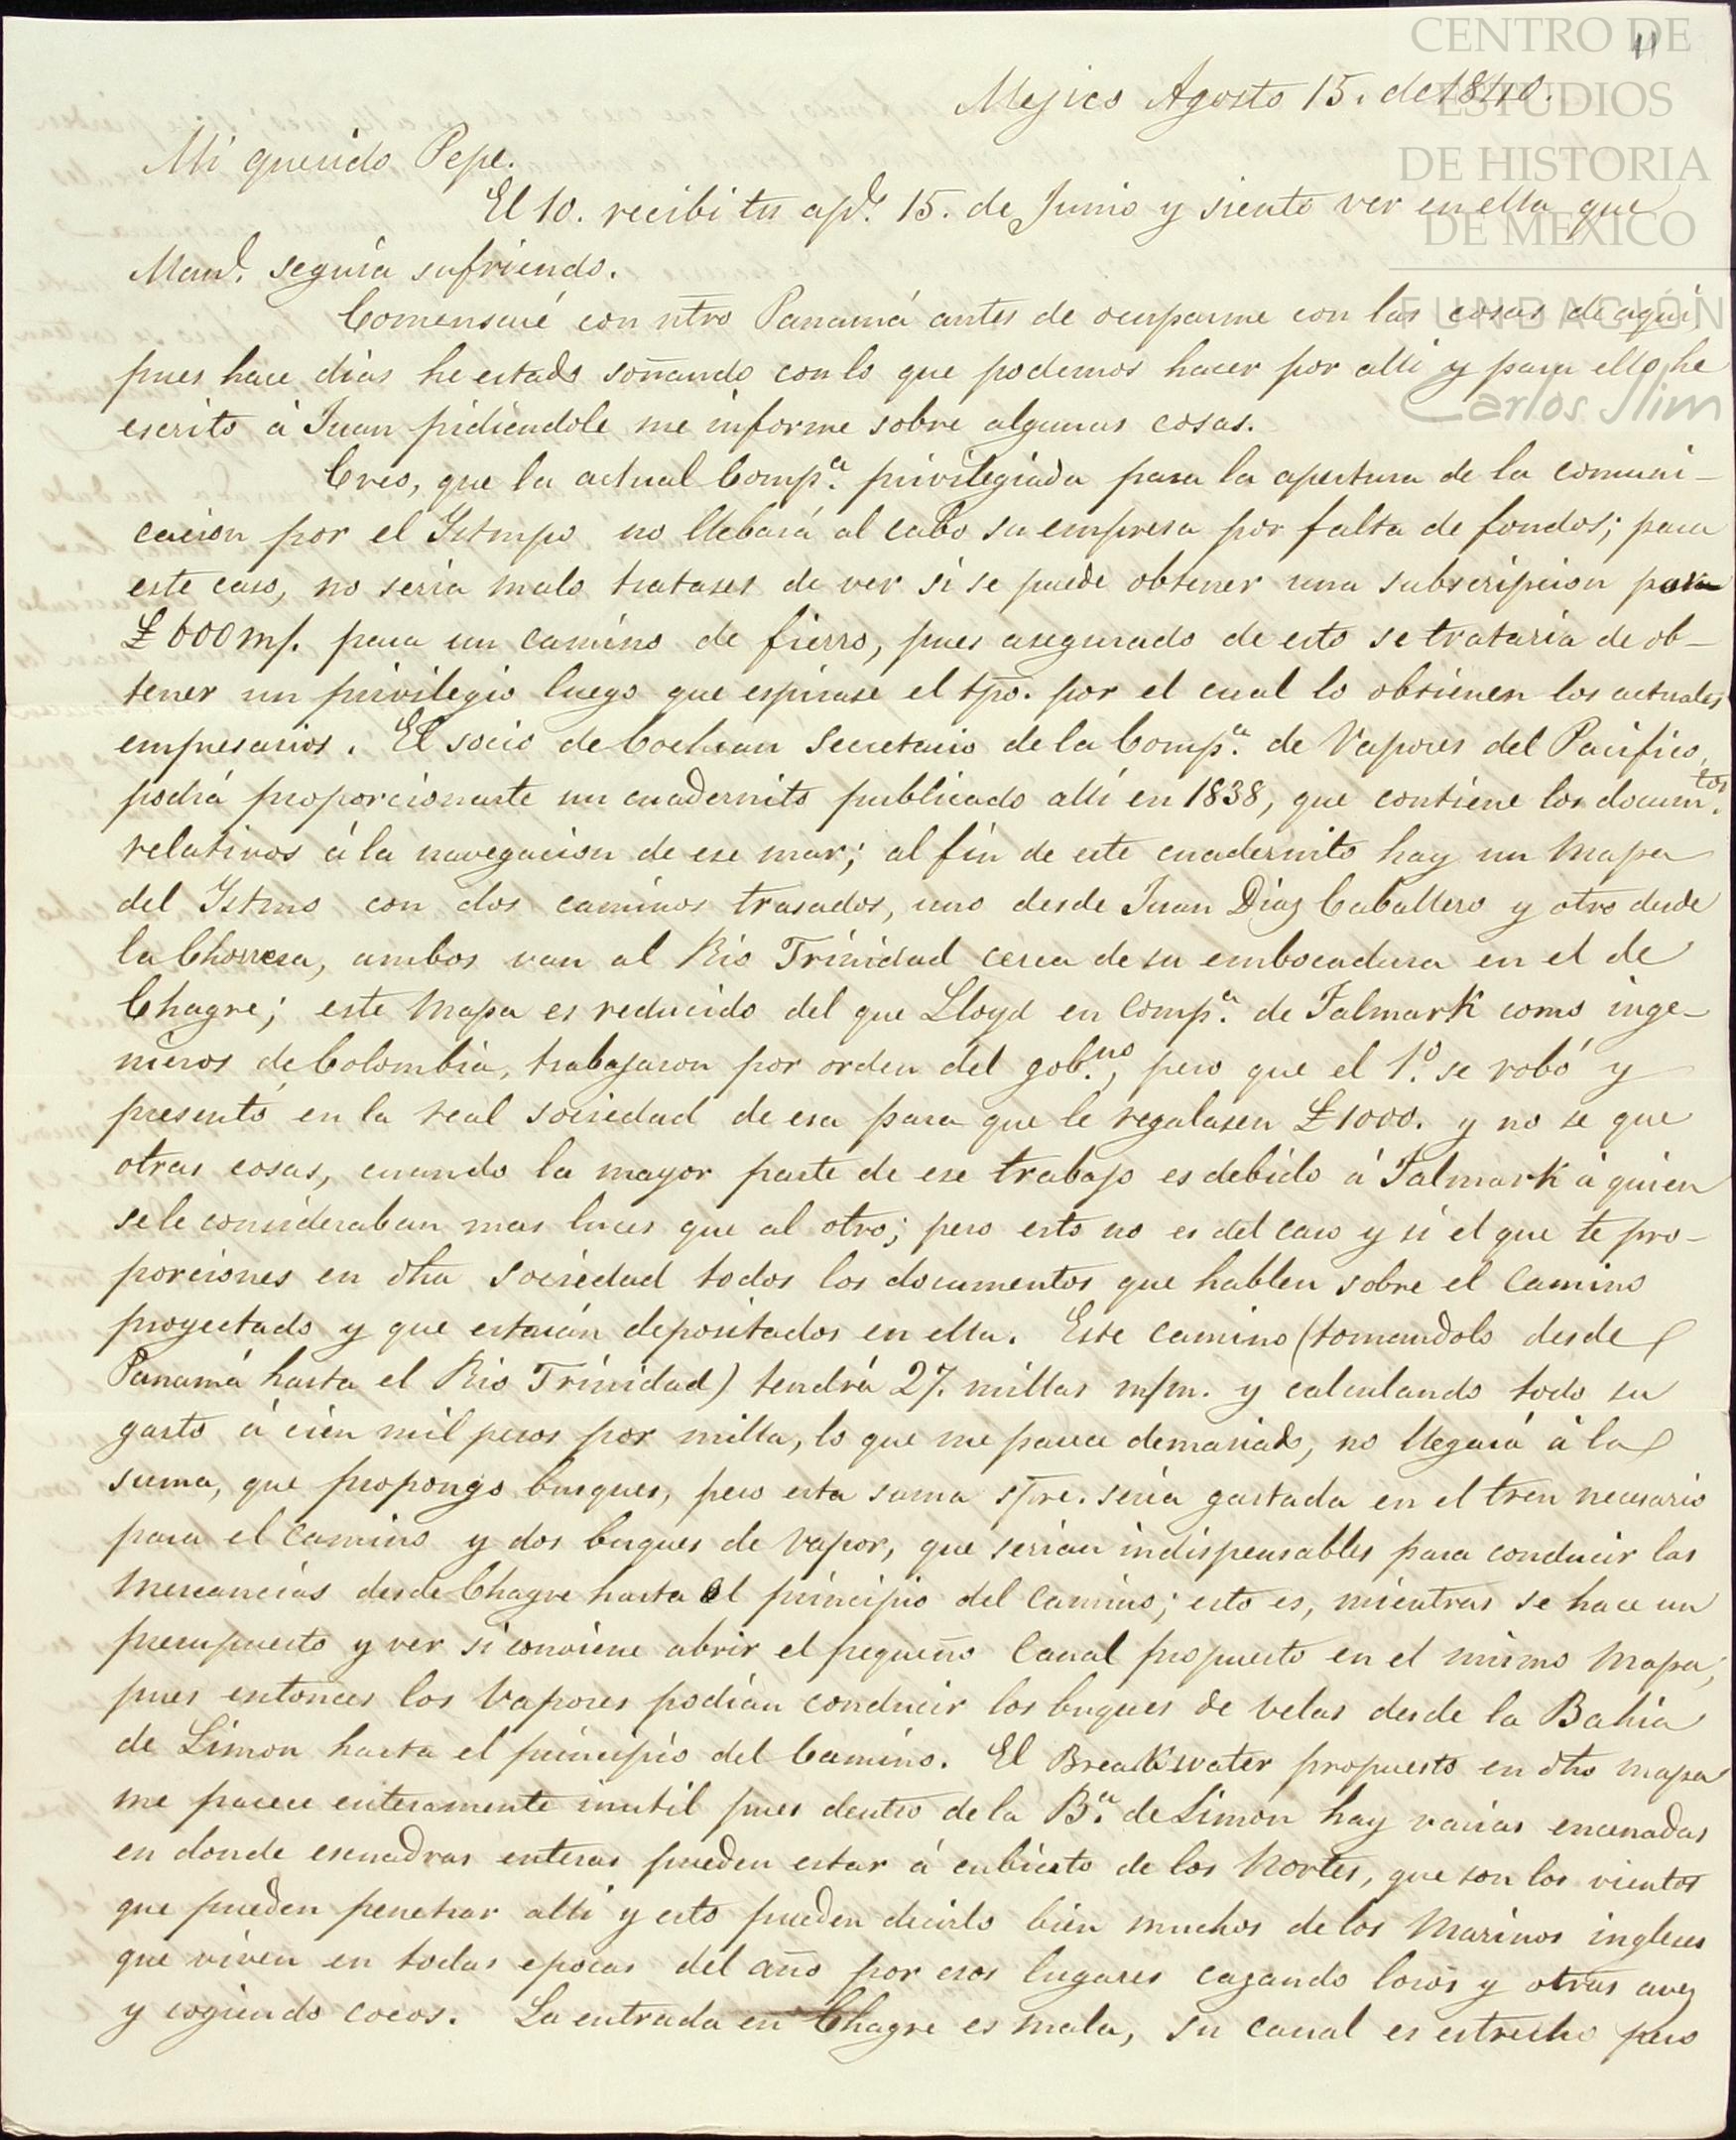 CENTRO DE
ESTUDIOS
DE HISTORIA
DE MEXICO
FUNDACIÓN
Carlos Slim
11
Mejico Agosto 15. de 1840.
Mi querido Pepe.
El 10. recibi tu apd. 15. de Junio y siento ver en ella que
Man.l seguia sufriendo.
Comensaré con ntro Panamá antes de ocuparme con las cosas de aqui,
pues hace dias he estado soñando con lo que podemos hacer por alli y para ello he
escrito á Juan pidiendole me informe sobre algunas cosas.
Creo, que la actual Comp.a privilegiada para la apertura de la comuni-
cacion por el Istmpo no llebará al cabo su empresa por falta de fondos; para
este caso, no seria malo tratases de ver si se puede obtener una subscripcion para
£ 600 m/. para un camino de fierro, pues asegurado de esto se trataria de ob-
tener un privilegio luego que espirase el tpo. por el cual lo obtienen los actuales
empresarios. El socio de Cochran Secretario de la Comp.a de Vapores del Pacifico,
podrá proporcionarte un cuadernito publicado alli en 1838, que contiene los docum.tos
relativos á la navegacion de ese mar; al fin de este cuadernito hay un Mapa
del Istmo con dos caminos trasados, uno desde Juan Diaz Caballero y otro desde
la Chorrera, ambos van al Rio Trinidad cerca de su embocadura en el de
Chagre; este Mapa es reducido del que Lloyd en Comp.a de Falmark como inge-
nieros de Colombia, trabajaron por orden del gob.no, pero que el 1.o se robó y
presentó en la real sociedad de esa para que le regalasen £ 1000. y no se que
otras cosas, cuando la mayor parte de ese trabajo es debido á Falmark á quien
se le consideraban mas luces que al otro; pero esto no es del caso y si el que te pro-
porciones en dha sociedad todos los documentos que hablen sobre el Camino
proyectado y que estarán depositados en ella. Este camino (tomandolo desde
Panamá hasta el Rio Trinidad) tendrá 27. millas m/m. y calculando todo su
gasto á cien mil pesos por milla, lo que me parece demasiado, no llegará á la
suma, que propongo busques, pero esta suma spre. seria gastada en el tren necesario
para el Camino y dos buques de vapor, que serian indispensables para conducir las
Mercancias desde Chagre hasta el principio del Camino; esto es, mientras se hace un
presupuesto y ver si conviene abrir el pequeño Canal propuesto en el mismo Mapa,
pues entonces los Vapores podian conducir los buques de velas desde la Bahia
de Limon hasta el principio del Camino. El Breakwater propuesto en dho mapa
me parece enteramente inutil pues dentro de la B.a de Limon hay varias encenadas
en donde escuadras enteras pueden estar á cubierto de los Nortes, que son los vientos
que pueden penetrar alli y esto pueden decirlo bien muchos de los Marinos ingleses
que viven en todas epocas del año por esos lugares cazando loros y otras aves
y cogiendo cocos. La entrada en Chagre es mala, su canal es estrecho pero